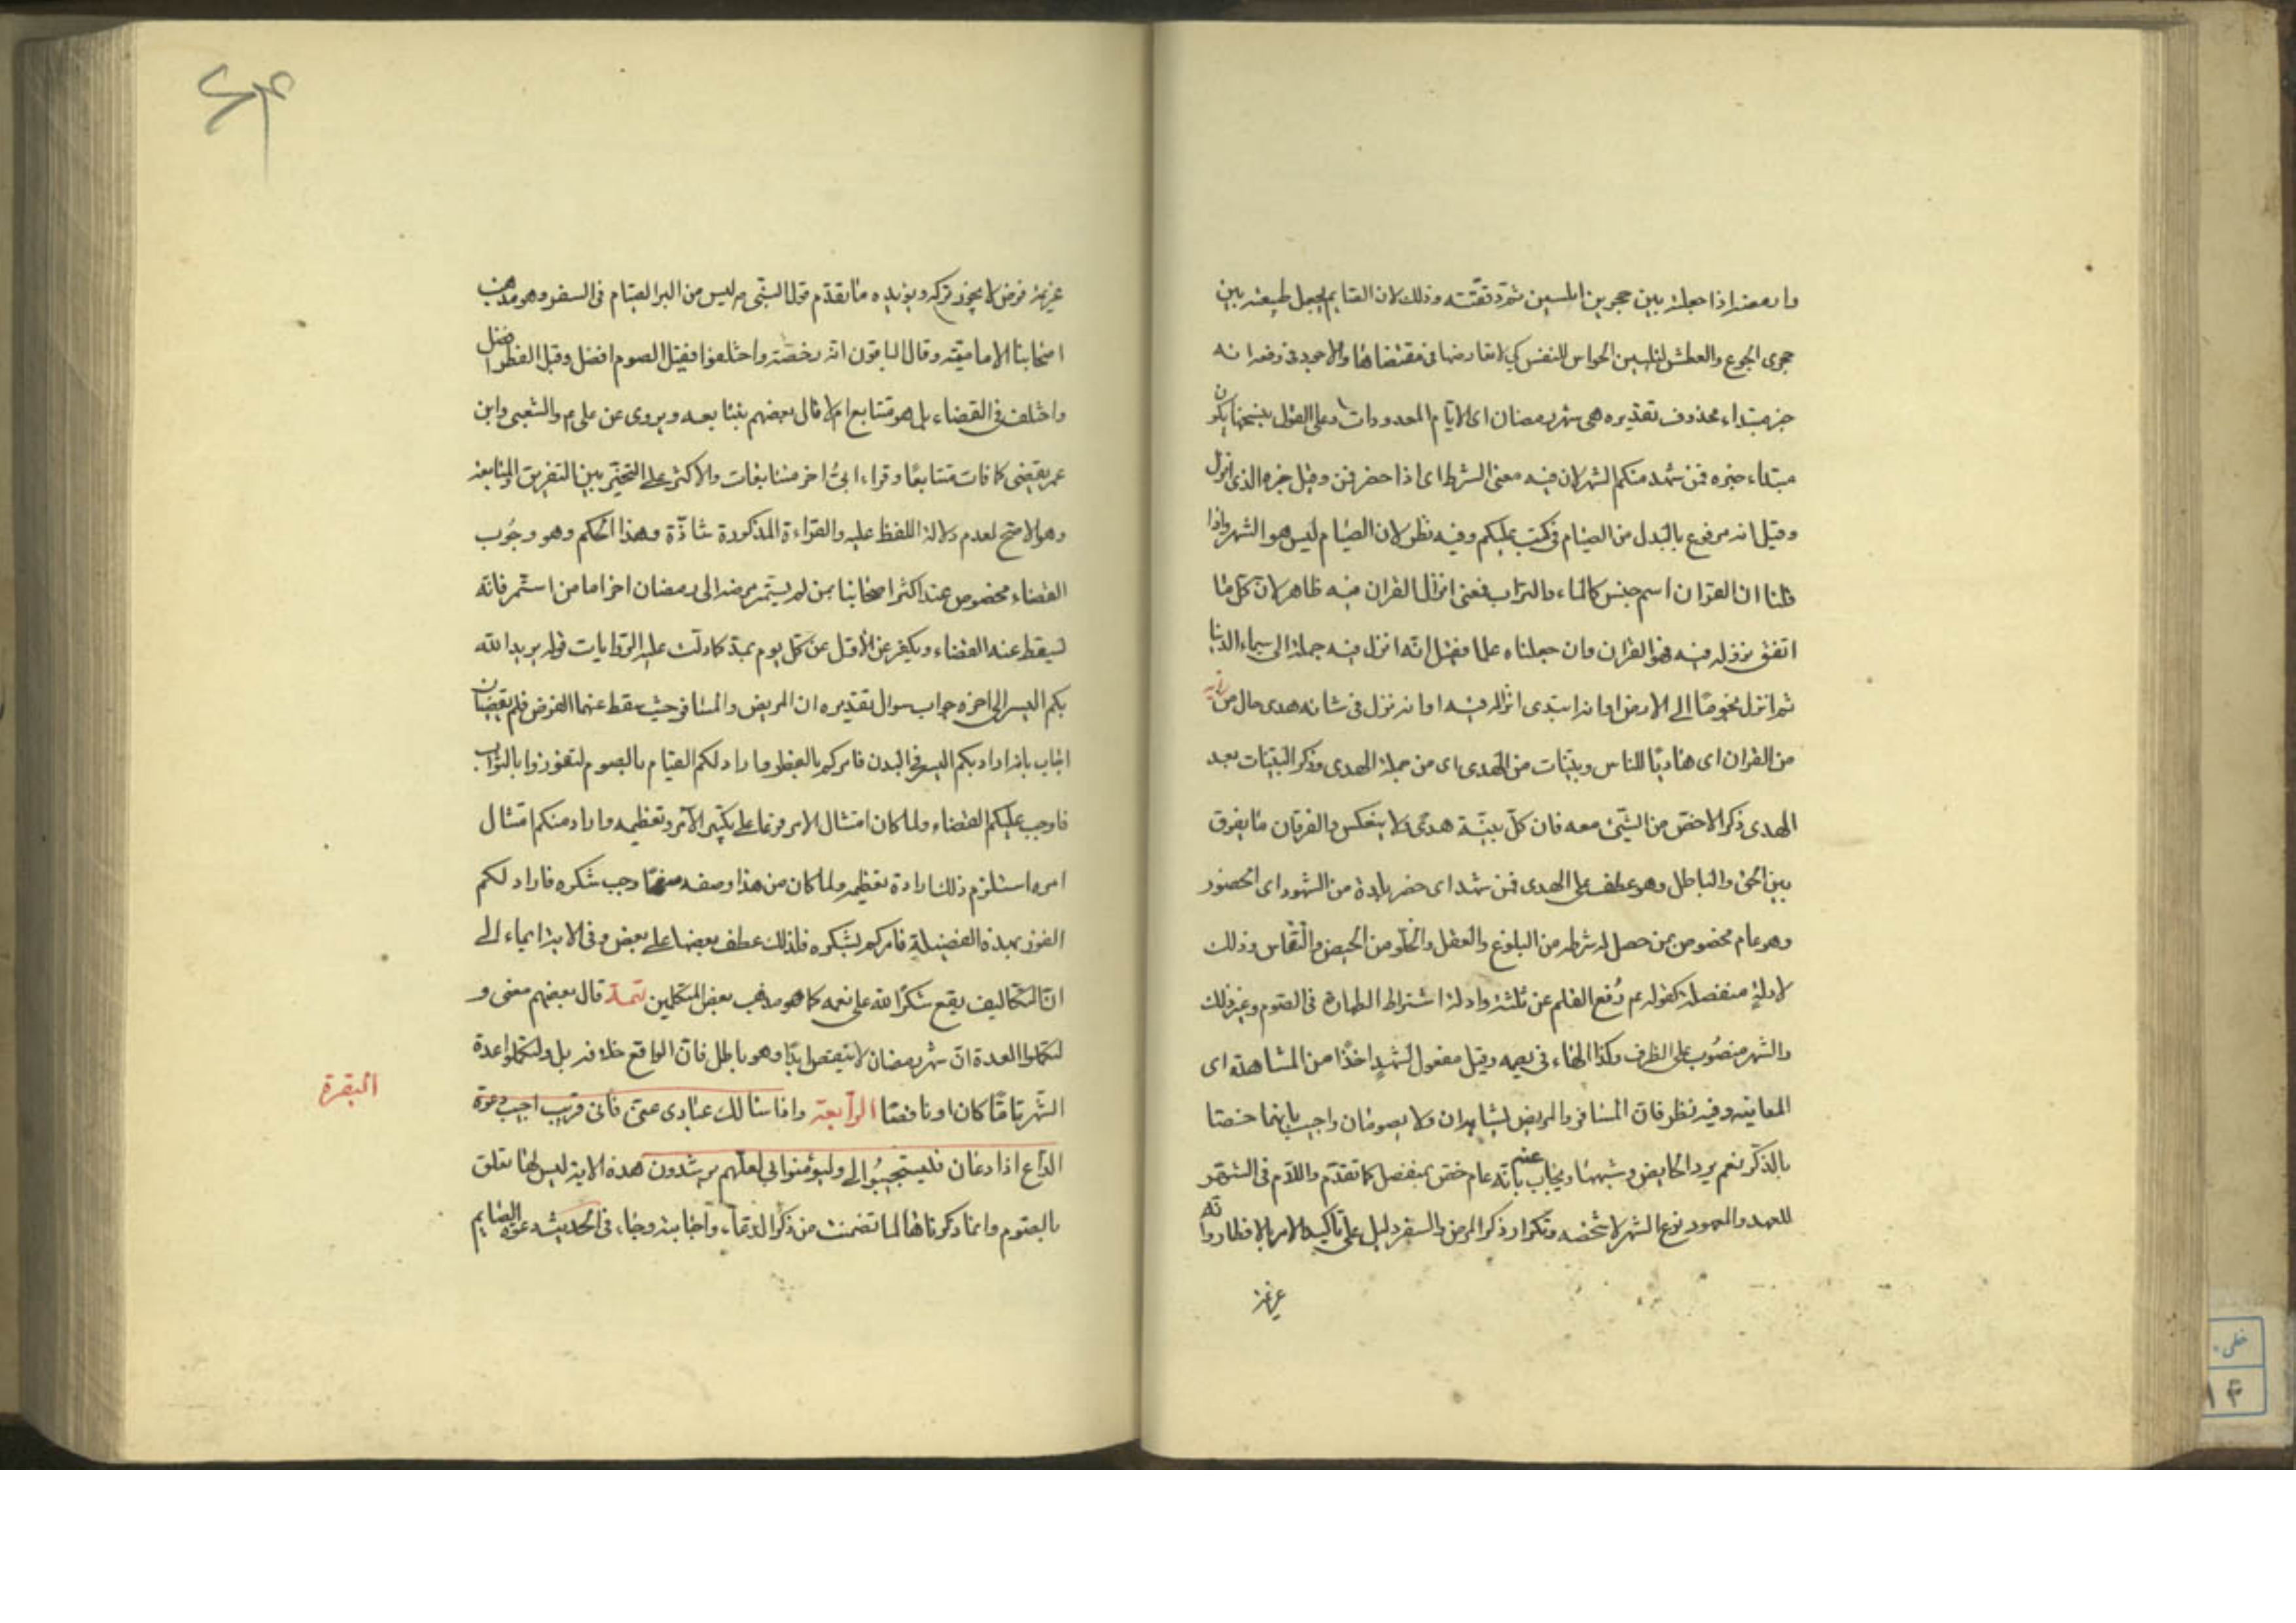 وارمضه اذا جعله بين حجرين املسين ثم دققته وذلك لان الصايم يجعل طبيعته بين
حجرى الجوع والعطش لتليين الحواس للنفس كى لا تعارضها فى مقتضاها والاجود فى رفعه انه
خبر مبتداء محذوف تقديره هى شهر رمضان اى الايام المعدودات وعلى القول بنسخها يكون
مبتداء خبره فمن شهد منكم الشهر لان فيه معنى الشرط اى اذا حضر فمن وقيل خبره الذى انزل
وقيل انه مرفوع بالبدل من الصيام فى كتب عليكم وفيه نظر لان الصيام ليس هو الشهر واذا
قلنا ان القران اسم جنس كالماء والتراب فمعنى انزال القران فيه ظاهر لان كل ما
اتفق نزوله فيه فهو القران وان جعلناه علما فقيل انه انزل فيه جملة الى سماء الدنيا
ثم انزل نجوما الى الارض او انه ابتدى انزاله فيه او انه نزل فى شانه هدى حال من
من القران اى هاديا للناس وبينات من الهدى اى من جملة الهدى وذكر البينات بعد
الهدى ذكر الاخص من الشئ معه فان كل بينة هدى ولا ينعكس والفرقان ما يفرق
بين الحق والباطل وهو عطف على الهدى فمن شهد اى حضر بلده من الشهود اى الحضور
وهو عام مخصوص بمن حصل له شرطه من البلوغ والعقل والخلو من الحيض والنفاس وذلك
لادلة منفصلة كقوله عم رفع القلم عن ثلثة وادلة اشتراط الطهارة فى الصوم وغير ذلك
والشهر منصوب على الظرف وكذا الهاء فى يصمه وقيل مفعول لشهد اخذا من المشاهدة اى
المعاينه وفيه نظر فان المسافر والمريض يشاهدان ولا يصومان واجيب بانهما خصتا
بالذكر نعم يرد الحايض وشبهها ويجاب عنه بانه عام خص بمنفصل كما تقدم واللام فى الشهر
للعهد والمعهود نوع الشهر لا شخصه وتكرار ذكر المرض والسفر دليل على تاكيد الامر بالافطار وانه
عزيمة
عزيمة فرض لا يجوز تركه ويؤيده ما تقدم قول النبى ص ليس من البر الصيام فى السفر وهو مذهب
اصحابنا الامامية وقال الباقون انه رخصة واختلفوا فقيل الصوم افضل وقيل الفطر افضل
واختلف فى القضاء بل هو متتابع ام لا قال بعضهم بتتابعه ويروى عن على ع والشعبى وابن
عمر يقضى كما فات متتابعا وقراءة ابىّ اخر متتابعات والاكثر على التخيير بين التفريق والمتابعة
وهو الاصح لعدم دلالة اللفظ عليه والقراءة المذكورة شاذة وهذا الحكم وهو وجوب
القضاء مخصوص عند اكثر اصحابنا بمن لم يستمر مرضه الى رمضان اخر اما من استمر فانه
يسقط عنه القضاء ويكفر عن الاول عن كل يوم بمد كما دلت عليه الروايات قوله يريد الله
بكم اليسر الى اخره جواب سوال تقديره ان المريض والمسافر حيث سقط عنهما الفرض فلم يقضيان
اجاب بانه اراد بكم اليسر فى البدن فامركم بالفطر واراد لكم القيام بالصوم لتفوزوا بالثواب
فاوجب عليكم القضاء ولما كان امتثال الامر فرعا على تكبير الآمر وتعظيمه واراد منكم امتثال
امره استلزم ذلك ارادة تعظيمه ولما كان من هذا وصفه وجب شكره فاراد لكم
الفوز بهذه الفضيلة فامركم بشكره فلذلك عطف بعضها على بعض وفى الاية ايماء الى
ان التكاليف يقع شكرا لله على نعمه كما هو مذهب بعض المتكلمين تتمة قال بعضهم معنى و
لتكملوا العدة ان شهر رمضان لا ينقص ابدا وهو باطل فان الواقع خلافه بل ولتكملوا عدة
الشهر تاما كان او ناقصا الرابعة واذا سالك عبادى عنى فانى قريب اجيب دعوة
الداع اذا دعان فليستجيبوا لى وليؤمنوا بى لعلهم يرشدون هذه الاية ليس لها تعلق
بالصوم وانما ذكرناها لما تضمنت من ذكر الدعاء واجابته وجاء فى الحديث دعوة الصايم
البقرة